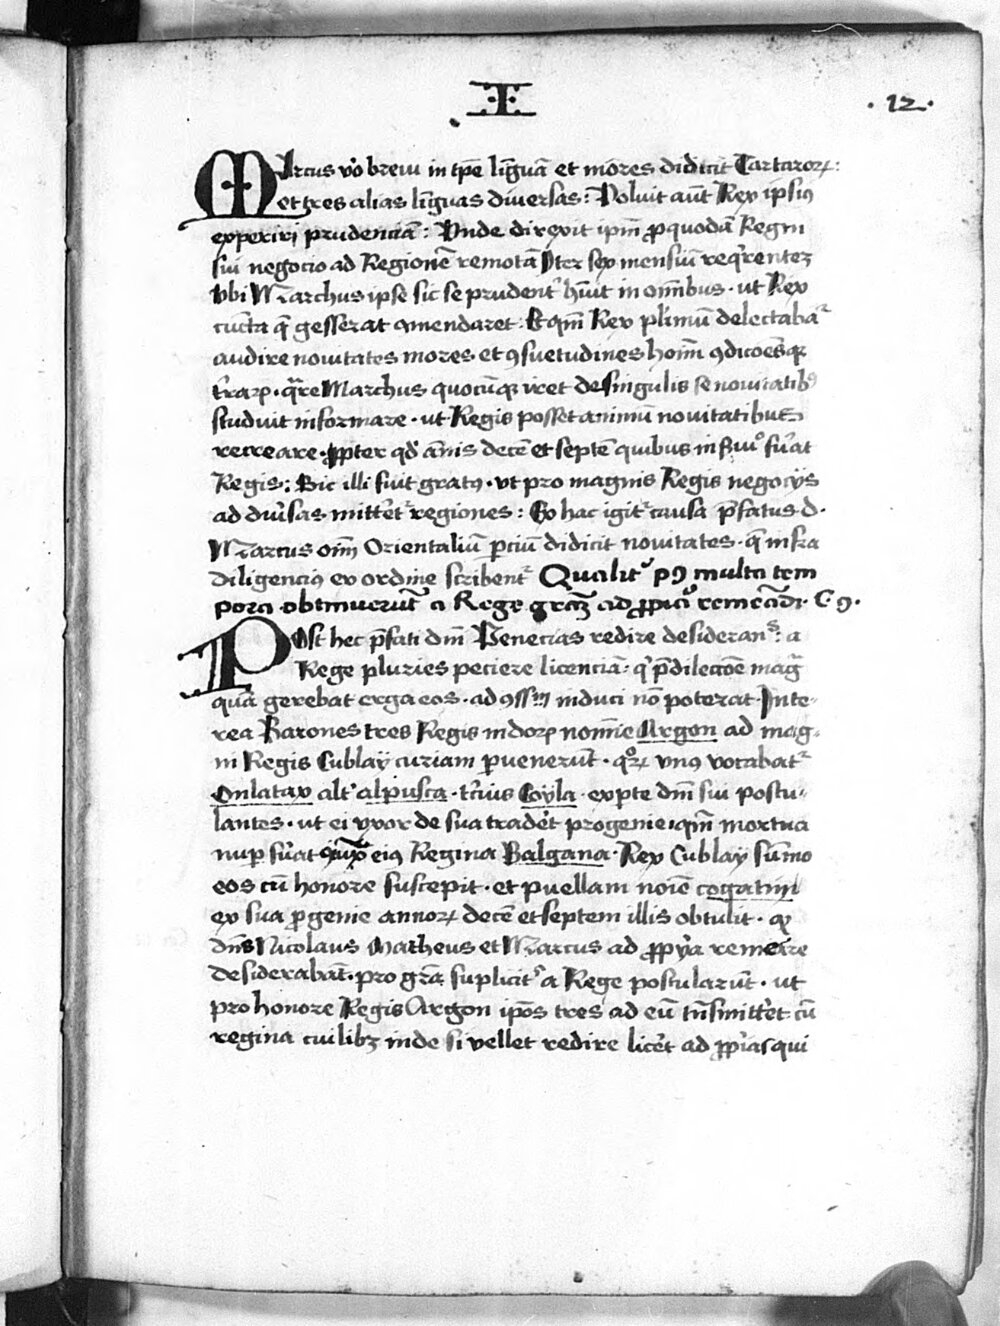 I
·12·
Marcus v̉o breui in tp̄e lin̄guā et mōres didicit Tartaroꝝ:
et tres alias lin̄guas diuersas: Voluit aūt Rex ipsiꝰ
experiri prudenciā: Vnde direxit ipm̄ ꝓ quodā Regni
sui negocio ad Regionē remotā Iter sex mensiū req̇rentez
Vbi Marchus ipse sic se prudent̉ hūit in om̄ibus · ut Rex
cūcta q̄ gesserat ꝯmendaret: Et qm̄ Rex pl̉imū delectabat̉
audire nouitates mores et ꝯsuetudines hoīm ꝯdicoēsqꝫ
t̉raꝝ · q̄re Marchus quocūqꝫ iret de singulis se nouitatibꝰ
studuit informare · ut Regis posset animū nouitatibus
recreare · ꝓpter qd̉ annis decē et septē quibus in ẜuiº fūat
Regis: Sic illi fuit gratꝰ · vt pro magnis Regis negocijs
ad diu̓sas mitt̓et̉ regiones: Ex hac igit̉ causa p̄fatus d·
Marcus oīm Orientaliū ꝑciū didicit nouitates · q̄ infra
diligenciꝰ ex ordine scribent̉ Qualit̉ pꝰ multa tem
pora obtinuerūt a Rege grām ad ꝓpīa remeādi · C 9·
Post hec p̄fati dn̄i Venecias redire desiderans: a
Rege pluries peciere licenciā: q̇ p̄ dilecōe mag̃
quā gerebat erga eos · ad ꝯss̄m induci nō poterat · Inte-
rea Barones tres Regis indoꝝ nomīe Argon ad mag-
ni Regis Cublay curiam ꝑuenerūt · qºꝝ vnꝰ vocabat̉
Onlatax alt̉ alpusca · t̓cius Coyla · ex ꝑte dn̄i sui postu-
lantes · ut ei vxor de sua trade̓t progenie · qm̄ mortua
nuꝑ fūat eiꝰ Regina Balgana · Rex Cublay sūmo
eos cū honore suscepit · et puellam noīe cogatim
ex sua ꝓgenie annoꝝ decē et septem illis obtulit · qꝫ
dn̄s Nicolaus Matheus et Marcus ad ꝓpria remeare
desiderabāt · pro grā suplicit̉ a Rege postularūt · ut
pro honore Regis Argon ipōs tres ad eū trāsmitt̓et cū
regina cuilibꝫ inde si vellet redire lice̓t ad ꝓprias qui